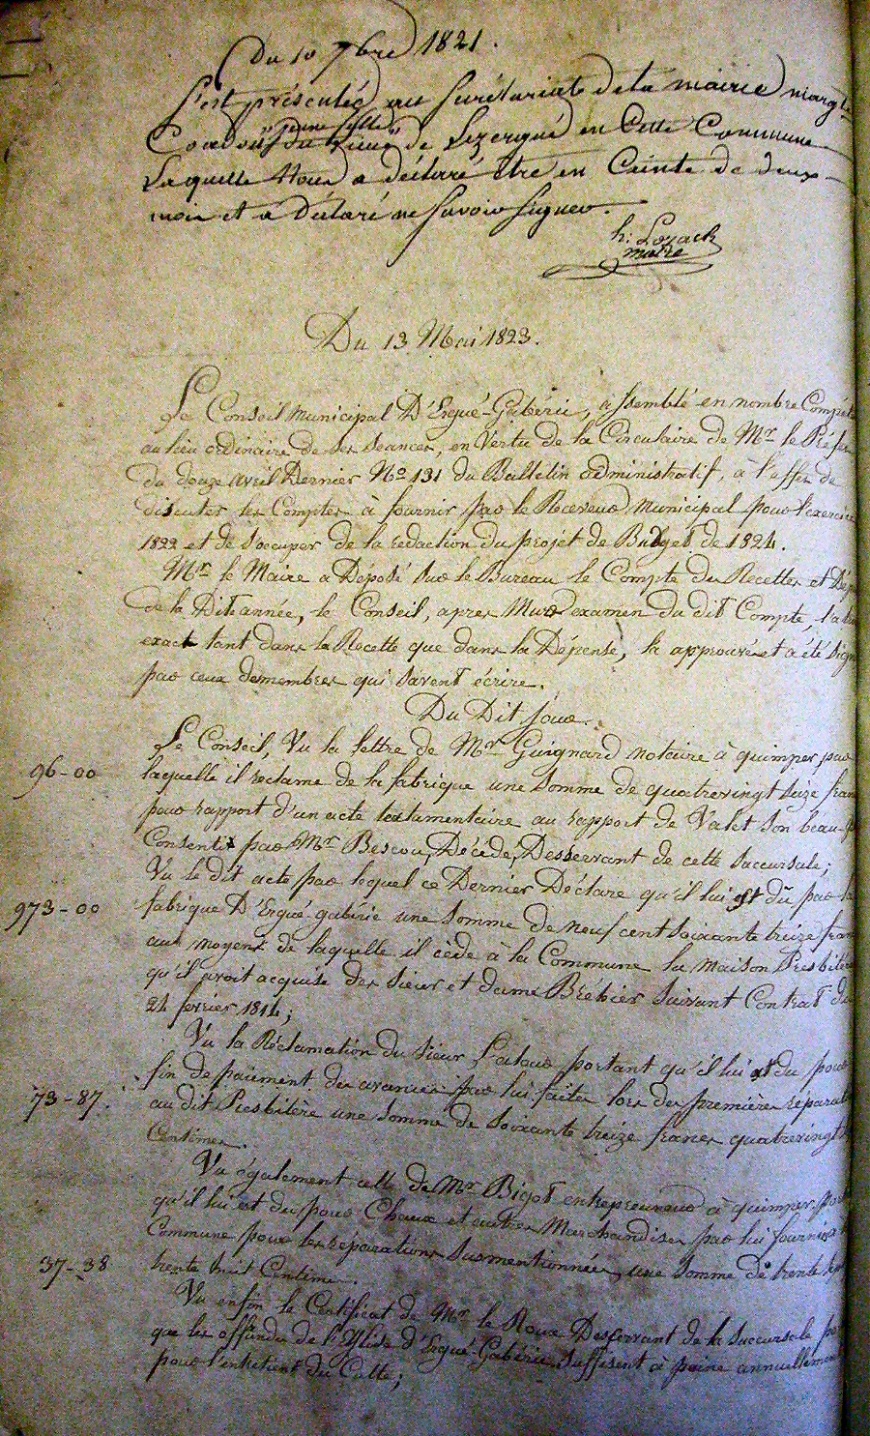 Du 10 7bre 1821.
S'est présentée au Secrétariate de la mairie marg^te
"jeune fille"
Coadou du Lieu de Lezergué en Cette Commune
Laquelle Nous a déclaré être en Ceinte de deux
mois et a déclaré ne Savoir Signer.
h: Lozach
maire
Du 13 Mai 1823.
Le Conseil municipal D'Ergué-Gabéric, assemblé en nombre Compét
au lieu ordinaire de ses séances, en Vertu de la Circulaire de Mr le Préfet
du douze avril Dernier No 131 du Bulletin administratif, à l'effet de
discuter les Comptes à fournir par le Receveur Municipal pour l'exercice
1822 et de s'occuper de la redaction du projet de Budget de 1824.
Mr le Maire a Déposé sur le Bureau le Compte des Recettes et Dép
de la Dite année, le Conseil, apres Mure examen du dit Compte, l'a
exact tant dans la Recette que dans la Dépense, la approuvé et a été sign
par ceux de membres qui savent écrire.
Du Dit jour.
Le Conseil, Vu la lettre de Mr Guignard notaire à quimper par
96-00 laquelle il reclame de la fabrique une somme de quatrevingt seize fran
pour rapport d'un acte testumentaire au rapport de Valet son beau-p
Consenti par Mr Bescou, Décédé, Desservant de cette succursale;
Vu le dit acte par lequel ce Dernier Déclare qu'il lui est dû par la
973-00 fabrique D'Ergué-gabéric une somme de neuf cent soixante treize fran
au moyens de laquelle il cède à la Commune la maison Presbitér
qu'il avoit acquise des sieur et dame Bréhier suivant Contrat du
24 fevrier 1814;
Vu la Réclamation du sieur portant qu'il lui est du pour
fin de paiment des avances par lui faites lors des premières réparat
73-87. au dit Presbitère une somme de Soixante treize francs quatrevingt
Centimes.
Vu également celle de Mr Bigot entrepreneur à quimper port
qu'il lui est du pour Chaux et autres Marchandises par lui fournies
Commune pour les réparations susmentionnées, une somme de trente
37-38 trente huit Centime.
Vu enfin le Certificat de Mr le Roux Desservant de la Succursale por
que les offrandes de l'Eglise d'Ergué-Gabéric suffisent à peine annuellement
pour l'entretient du Culte;